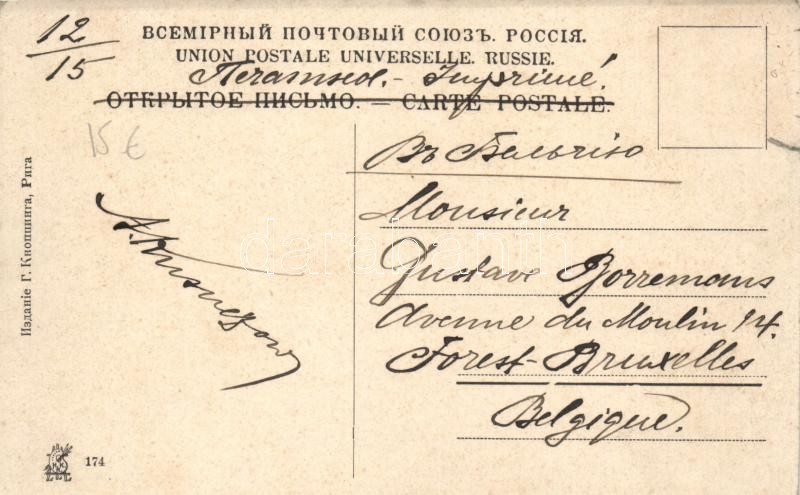 12/15
ВСЕМІРНЫЙ ПОЧТОВЫЙ СОЮЗЪ. РОССІЯ.
UNION POSTALE UNIVERSELLE. RUSSIE.
Печатное. - Imprimé!
ОТКРЫТОЕ ПИСЬМО. — CARTE POSTALE.
15 €
Въ Бельгію
Monsieur
Gustave Borremans
Avenue du Moulin 14.
Forest-Bruxelles
Belgique.
A. Kusnezow
Изданіе Г. Кноппинга, Рига
174
darabanth